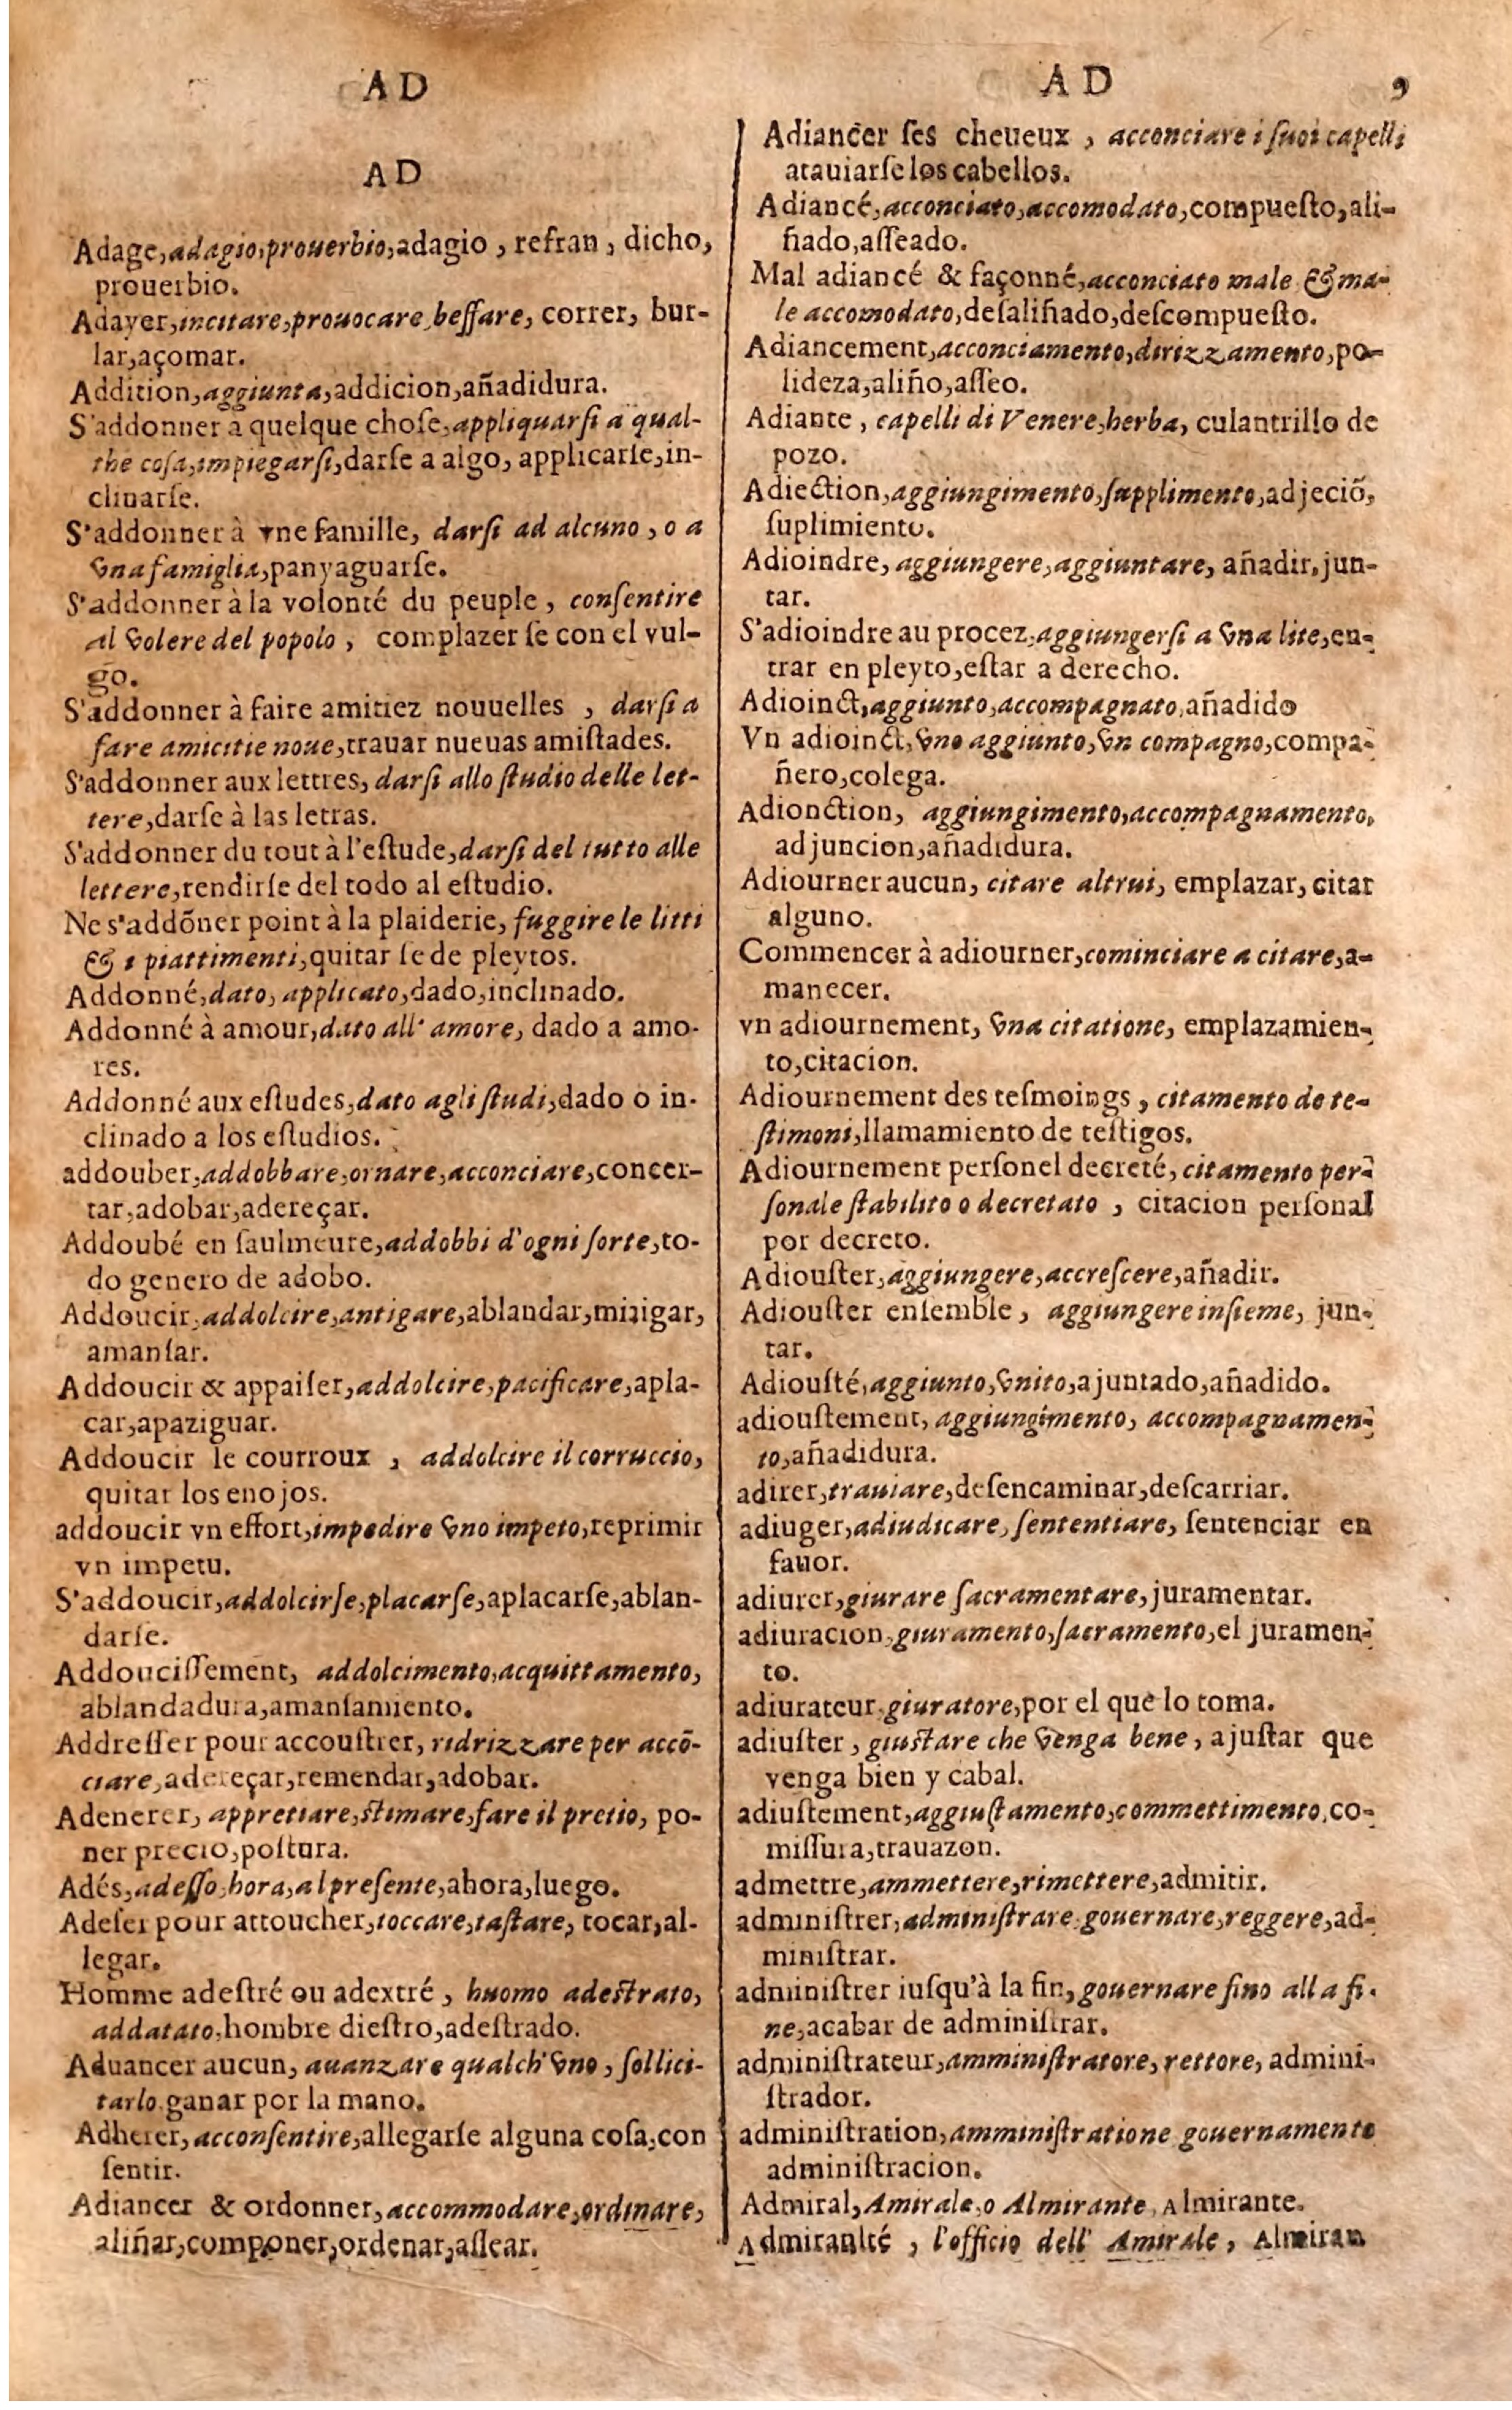 AD
AD
Adage,adagio,prouerbio,adagio , refran , dicho,
prouerbio.
Adayer,incitare,prouocare,beffare, correr, bur-
lar,açomar.
Addition,aggiunta,addicion,añadidura.
S'addonner a quelque choſe,appliquarſi a qual-
che coſa,impiegarſi,darſe a algo, applicarſe,in-
clinarſe.
S'addonner à vne famille, darſi ad alcuno , o a
vna famiglia,panyaguarſe.
S'addonner à la volonté du peuple , conſentire
al volere del popolo , complazer ſe con el vul-
go.
S'addonner à faire amitiez nouuelles , darſi a
fare amicitie noue,trauar nueuas amiſtades.
S'addonner aux lettres, darſi allo ſtudio delle let-
tere,darſe à las letras.
S'addonner du tout à l'eſtude,darſi del tutto alle
lettere,rendirſe del todo al eſtudio.
Ne s'addõner point à la plaiderie, fuggire le litti
& i piattimenti,quitar ſe de pleytos.
Addonné,dato, applicato,dado,inclinado.
Addonné à amour,dato all' amore, dado a amo-
res.
Addonné aux eſtudes,dato agli ſtudi,dado o in-
clinado a los eſtudios.
addouber,addobbare,ornare,acconciare,concer-
tar,adobar,adereçar.
Addoubé en ſaulmeure,addobbi d'ogni ſorte,to-
do genero de adobo.
Addoucir,addolcire,antigare,ablandar,mitigar,
amanſar.
Addoucir & appaiſer,addolcire,pacificare,apla-
car,apaziguar.
Addoucir le courroux , addolcire il corruccio,
quitar los enojos.
addoucir vn effort,impedire vno impeto,reprimir
vn impetu.
S'addoucir,addolcirſe,placarſe,aplacarſe,ablan-
darſe.
Addouciſſement, addolcimento,acquittamento,
ablandadura,amanſamiento.
Addreſſer pour accouſtrer, ridrizzare per accõ-
ciare,adereçar,remendar,adobar.
Adenerer, appretiare,ſtimare,fare il pretio, po-
ner precio,poſtura.
Adés,adeſſo,hora,al preſente,ahora,luego.
Adeſer pour attoucher,toccare,taſtare, tocar,al-
legar.
Homme adeſtré ou adextré , huomo adeſtrato,
addatato,hombre dieſtro,adeſtrado.
Aduancer aucun, auanzare qualch'vno , ſollici-
tarlo.ganar por la mano.
Adherer, acconſentire,allegarſe alguna coſa,con
ſentir.
Adiancer & ordonner,accommodare,ordinare,
aliñar,componer,ordenar,aſſear.
AD 9
Adiancer ſes cheueux , acconciare i ſuoi capelli
atauiarſe los cabellos.
Adiancé,acconciato,accomodato,compueſto,ali-
ñado,aſſeado.
Mal adiancé & façonné,acconciato male & ma-
le accomodato,deſaliñado,deſcompueſto.
Adiancement,acconciamento,dirizzamento,po-
lideza,aliño,aſſeo.
Adiante , capelli di Venere,herba, culantrillo de
pozo.
Adiection,aggiungimento,ſupplimento,adjeciõ,
ſuplimiento.
Adioindre, aggiungere,aggiuntare, añadir,jun-
tar.
S'adioindre au procez,aggiungerſi a vna lite,en-
trar en pleyto,eſtar a derecho.
Adioinct,aggiunto,accompagnato,añadido
Vn adioinct,vno aggiunto,vn compagno,compa-
ñero,colega.
Adionction, aggiungimento,accompagnamento,
adjuncion,añadidura.
Adiourner aucun, citare altrui, emplazar, citar
alguno.
Commencer à adiourner,cominciare a citare,a-
manecer.
vn adiournement, vna citatione, emplazamien-
to,citacion.
Adiournement des teſmoings , citamento de te-
ſtimoni,llamamiento de teſtigos.
Adiournement perſonel decreté, citamento per-
ſonale ſtabilito o decretato , citacion perſonal
por decreto.
Adiouſter,aggiungere,accreſcere,añadir.
Adiouſter enſemble , aggiungere inſieme, jun-
tar.
Adiouſté,aggiunto,vnito,ajuntado,añadido.
adiouſtement, aggiungimento, accompagnamen-
to,añadidura.
adirer,trauiare,deſencaminar,deſcarriar.
adiuger,adiudicare, ſententiare, ſentenciar en
fauor.
adiurer,giurare ſacramentare,juramentar.
adiuracion,giuramento,ſacramento,el juramen-
to.
adiurateur,giuratore,por el que lo toma.
adiuſter , giuſtare che venga bene , ajuſtar que
venga bien y cabal.
adiuſtement,aggiuſtamento,commettimento,co-
miſſura,trauazon.
admettre,ammettere,rimettere,admitir.
adminiſtrer,adminiſtrare,gouernare,reggere,ad-
miniſtrar.
adminiſtrer iuſqu'à la fin,gouernare fino alla fi-
ne,acabar de adminiſtrar.
adminiſtrateur,amminiſtratore,rettore, admini-
ſtrador.
adminiſtration,amminiſtratione gouernamento
adminiſtracion.
Admiral,Amirale,o Almirante,Almirante.
Admiraulté , l'officio dell' Amirale , Almiran